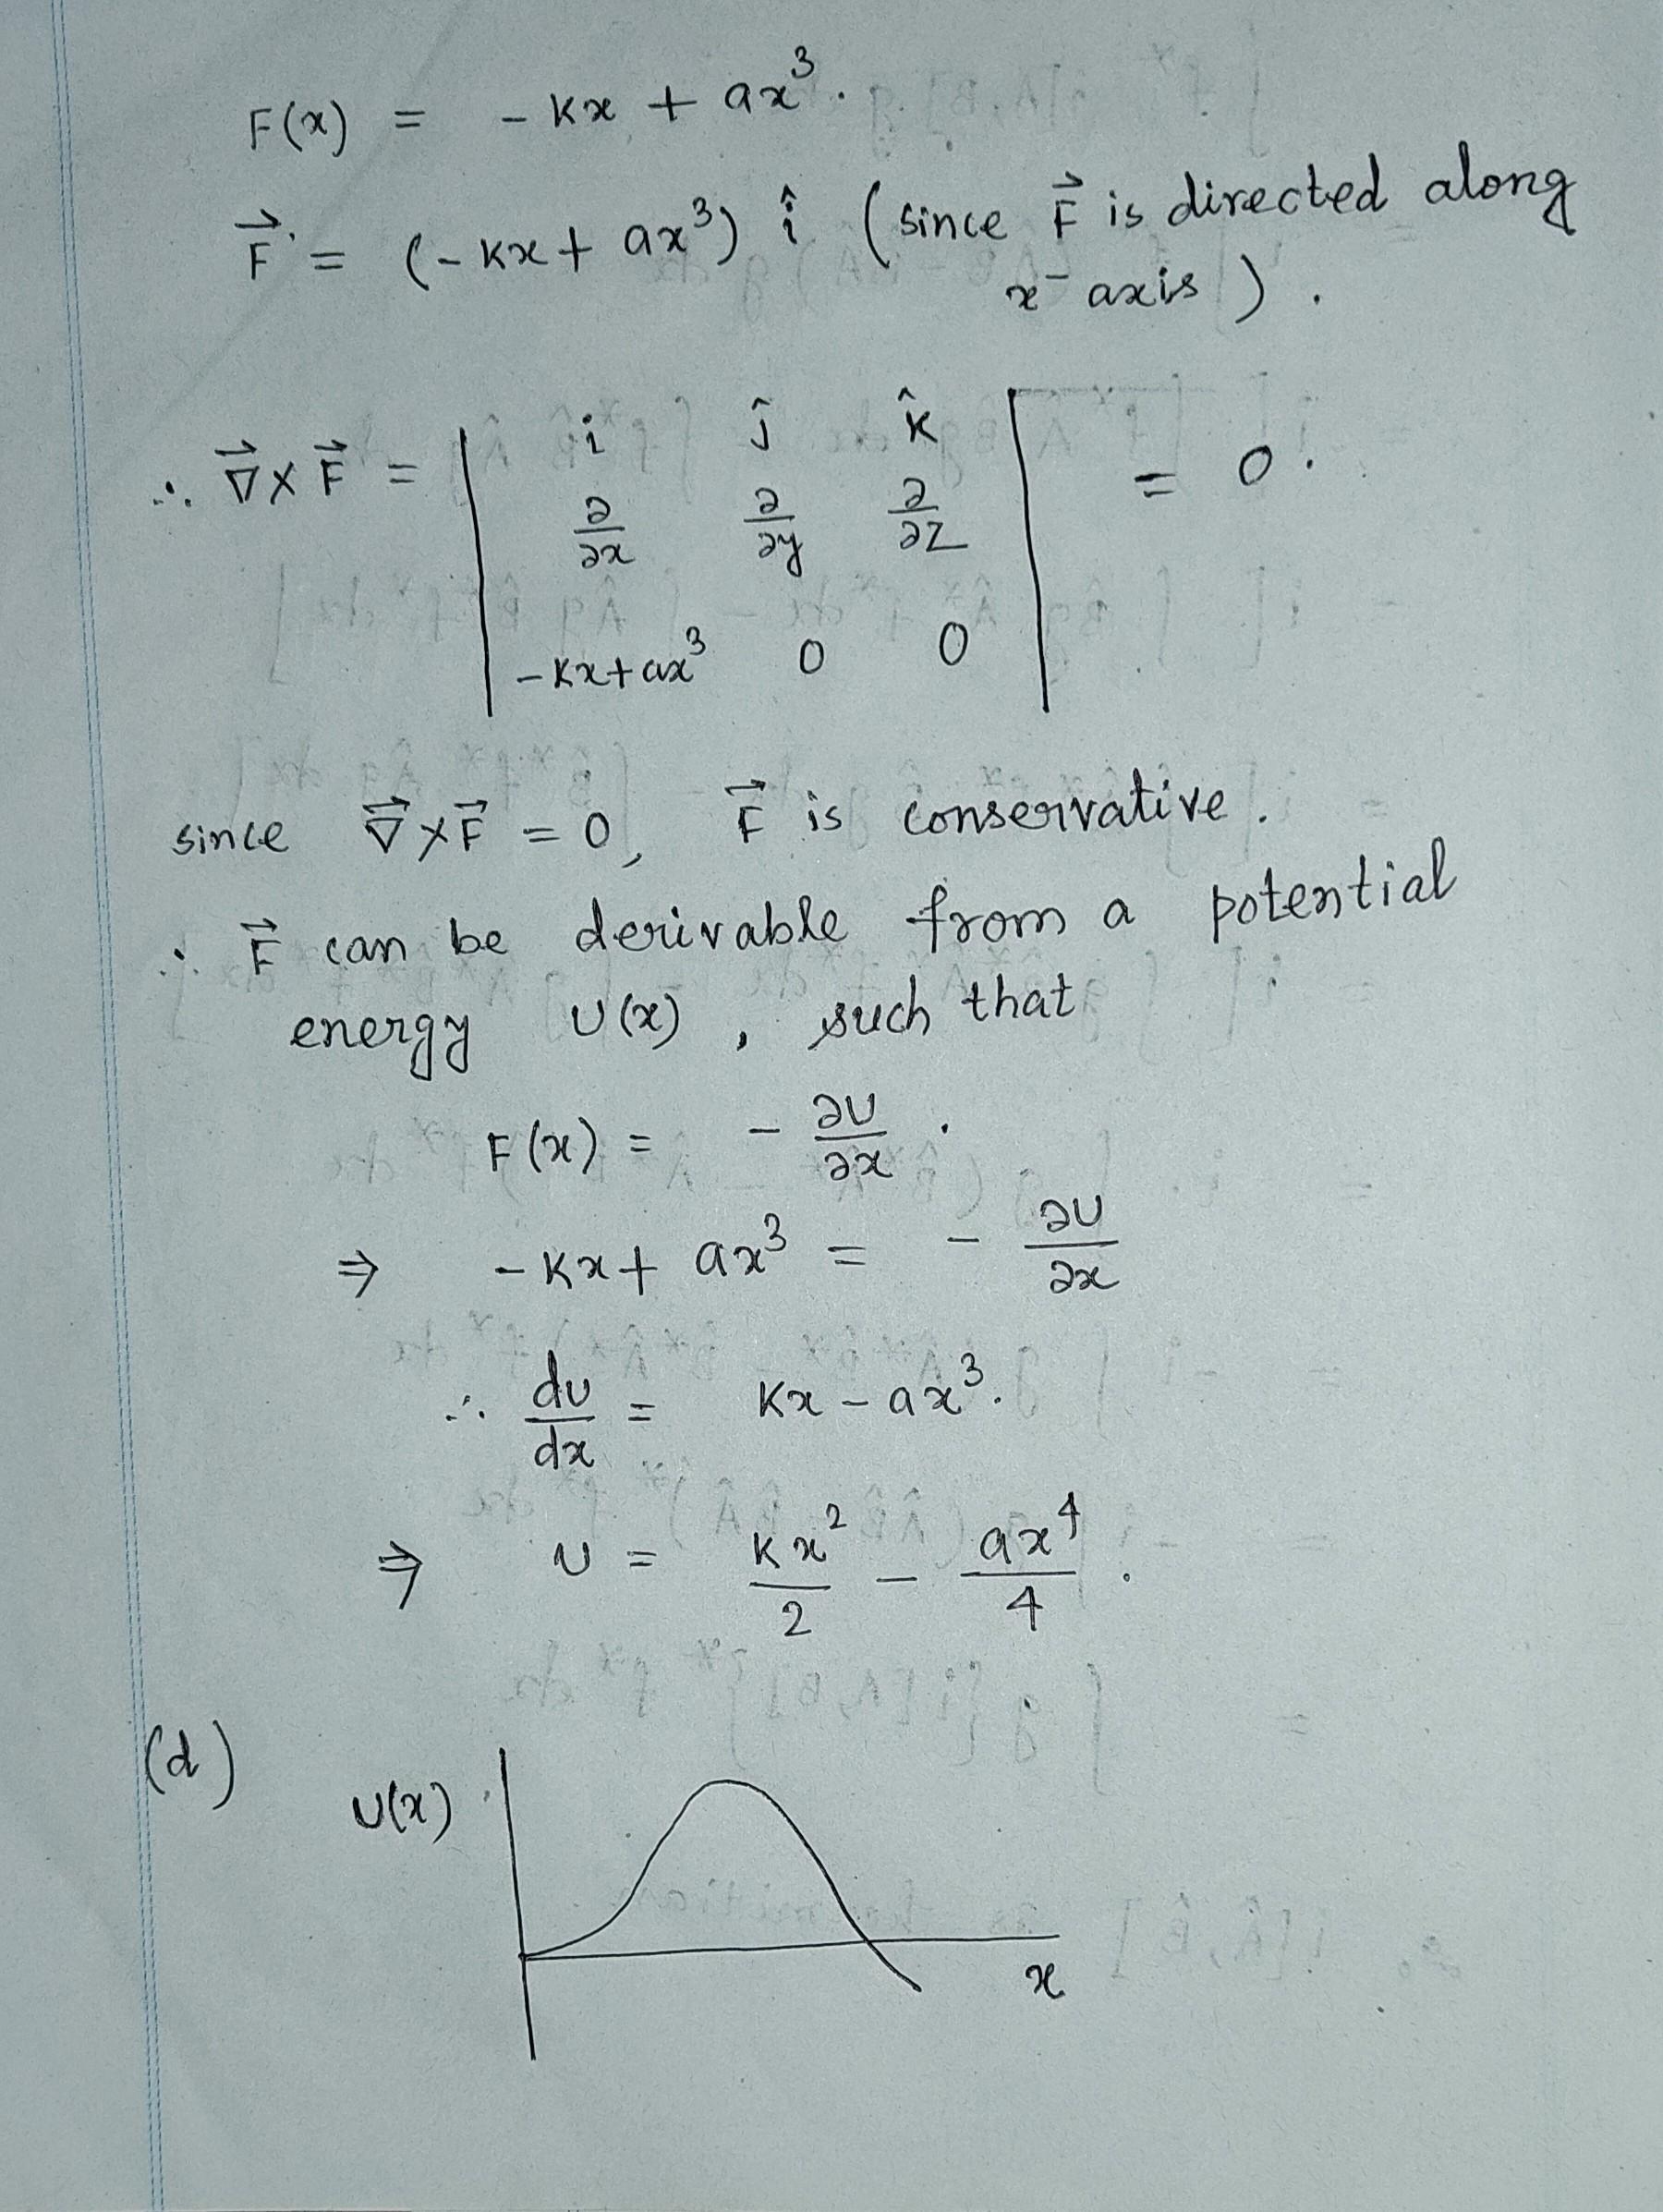 F(x) = - kx + ax³.
F⃗ = (-kx + ax³) î (since F⃗ is directed along
x-axis).
∴ ∇⃗ × F⃗ = | î ĵ k̂ | = 0.
∂/∂x ∂/∂y ∂/∂z
-kx+ax³ 0 0
since ∇⃗×F⃗ = 0, F⃗ is conservative.
∴ F⃗ can be derivable from a potential
energy U(x), such that
F(x) = - ∂U/∂x.
⇒ -kx + ax³ = - ∂U/∂x
∴ dU/dx = kx - ax³.
⇒ U = kx²/2 - ax⁴/4.
(d)
U(x)
x